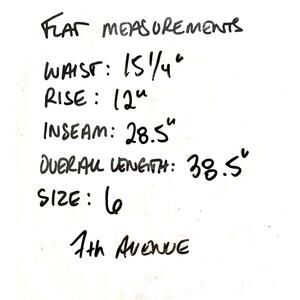 FLAT MEASUREMENTS
WAIST: 15 1/4"
RISE: 12"
INSEAM: 28.5"
OVERALL LENGTH: 38.5"
SIZE: 6
7th AVENUE